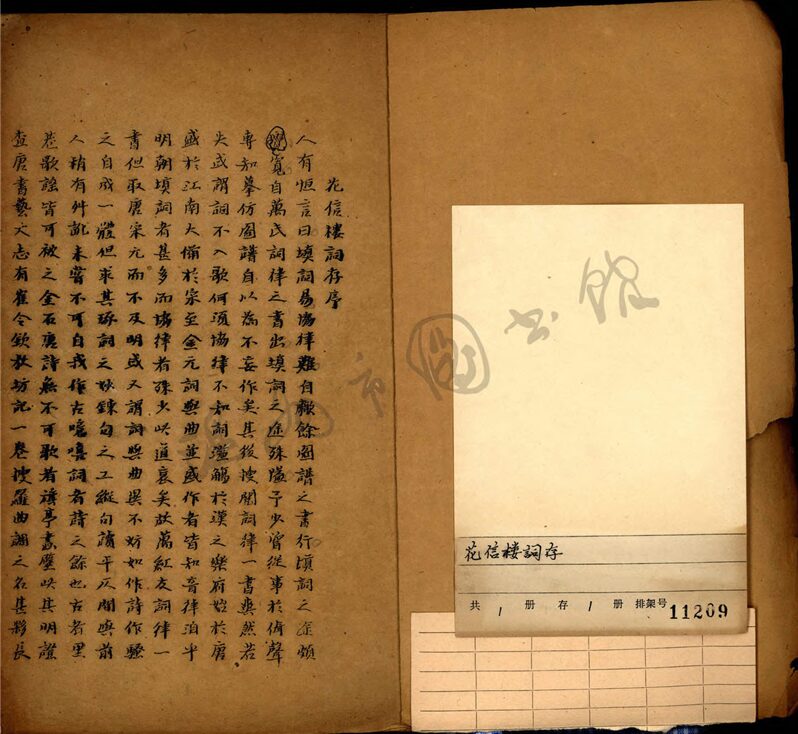 花信樓詞存序
人有恒言曰填詞易協律難自歗餘圖譜之書行填詞之途頗
寬自萬氏詞律之書出填詞之途殊隘予少曾從事於倚聲
專知摹仿圖譜自以為不妄作矣其後披閱詞律一書爽然若
失或謂詞不入歌何須協律不知詞濫觴於漢之樂府始於唐
盛於江南大備於宋至金元詞與曲並盛作者皆知音律洎乎
明朝填詞者甚多而協律者殊少此道衰矣故萬紅友詞律一
書但取唐宋元而不及明或又謂詞與曲異不妨如作詩作騷
之自成一體但求其琢詞之妙鍊句之工縱句讀平仄間與前
人稍有舛訛未嘗不可自我作古噫嘻詞者詩之餘也古者里
巷歌謠皆可被之金石唐詩無不可歌者旗亭畫壁此其明證
查唐書藝文志有崔令欽教坊記一卷搜羅曲調之名甚夥長
花信楼詞存
共 1 册 存 1 册 排架号 11209
市图书馆